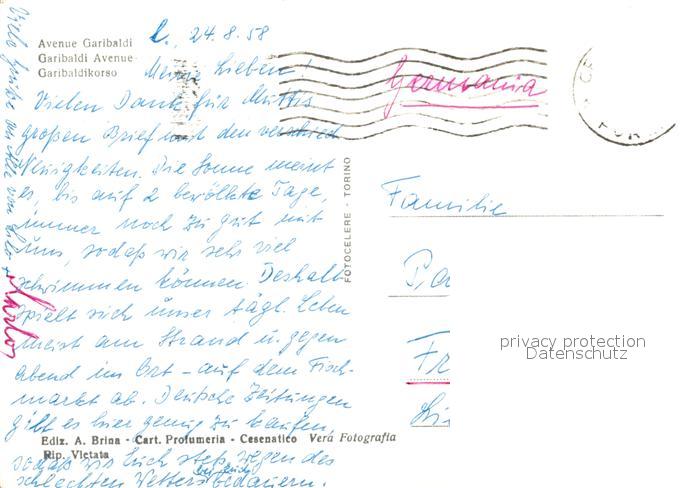 Avenue Garibaldi
Garibaldi Avenue
Garibaldikorso
C., 24.8.58
Meine Lieben!
Vielen Dank für Muttis
großen Brief mit den verschied.
Neuigkeiten. Die Sonne meint
es, bis auf 2 bewölkte Tage,
immer noch zu gut mit
uns, sodaß wir sehr viel
schwimmen können. Deshalb
spielt sich unser tägl. Leben
meist am Strand u. gegen
abend im Ort - auf dem Fisch-
markt ab. Deutsche Zeitungen
gibt es hier genug zu kaufen,
sodaß wir Euch stets wegen des
schlechten Wetters bei Euch bedauern.
Viele Grüße an Alle von
Ediz. A. Brina - Cart. Profumeria - Cesenatico Vera Fotografia
Rip. Vietata
FOTOCELERE - TORINO
Germania
Familie
Fr
privacy protection
Datenschutz